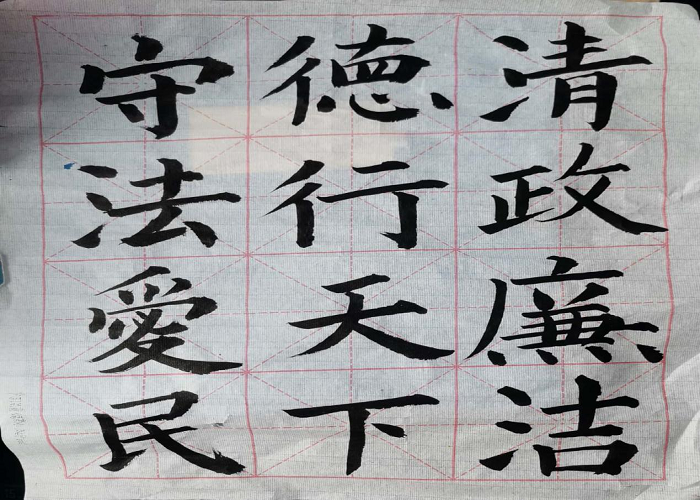 清政廉洁
德行天下
守法愛民